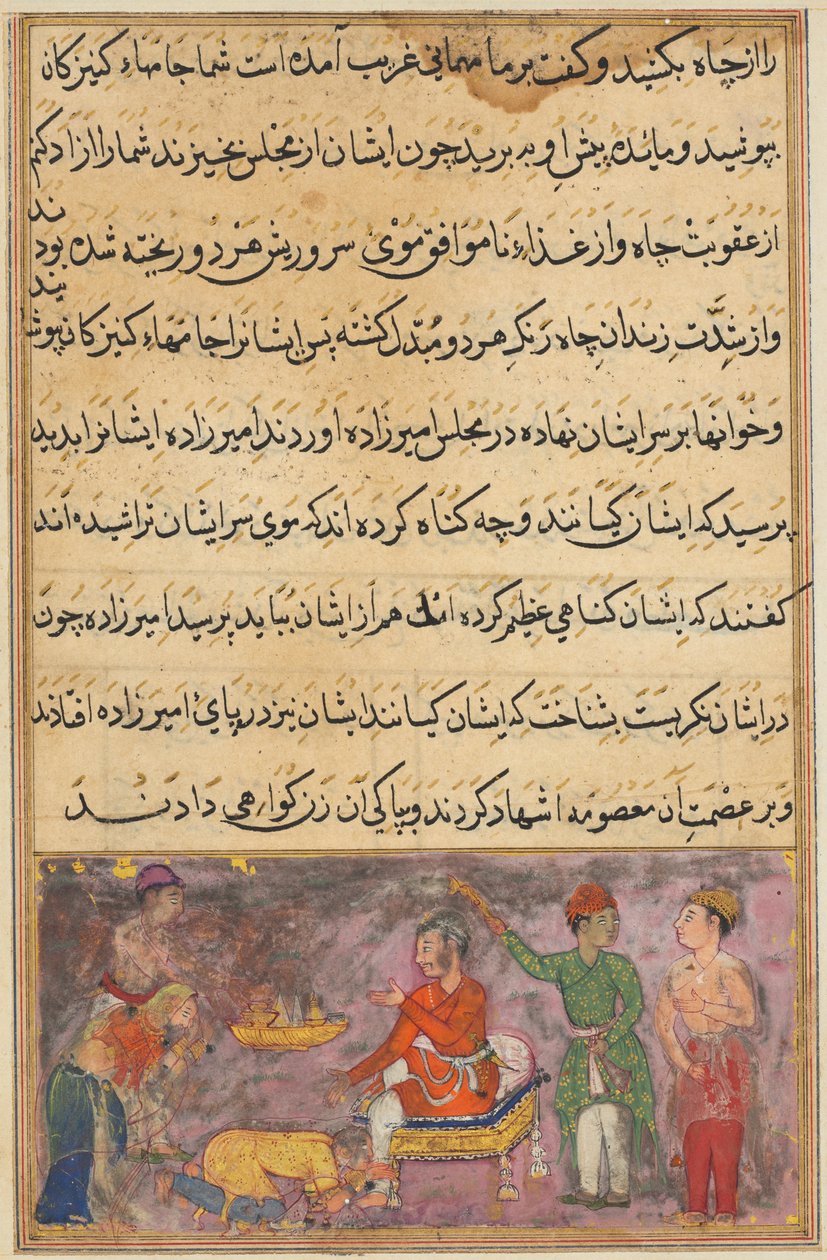 را از چاه بکشید و کفت بر ما مهمانی غریب آمده است شما جامهاء کنیزکان
بپوشید و مائده پیش او به برید چون ایشان از مجلس بخیزند شما را ازاد کنم
از عقوبت چاه و از غذاء ناموافق موی سر و ریش هر دو ریخته شده بودند
و از شدت زندان چاه رنک هر دو مبدل کشته پس ایشانرا جامهاء کنیزکان پوشانیدند
و خوانها بر سر ایشان نهاده در مجلس امیرزاده اوردند امیرزاده ایشانرا بدید
پرسید که ایشان کیانند و چه کناه کرده اند که موی سر ایشان تراشیده اند
کفتند که ایشان کناهی عظیم کرده اند هم از ایشان بباید پرسید امیرزاده چون
در ایشان نکریست بشناخت که ایشان کیانند ایشان نیز در پای امیرزاده افتادند
و بر عصمت آن معصومه اشهاد کردند و بپاکی آن زن کواهی دادند